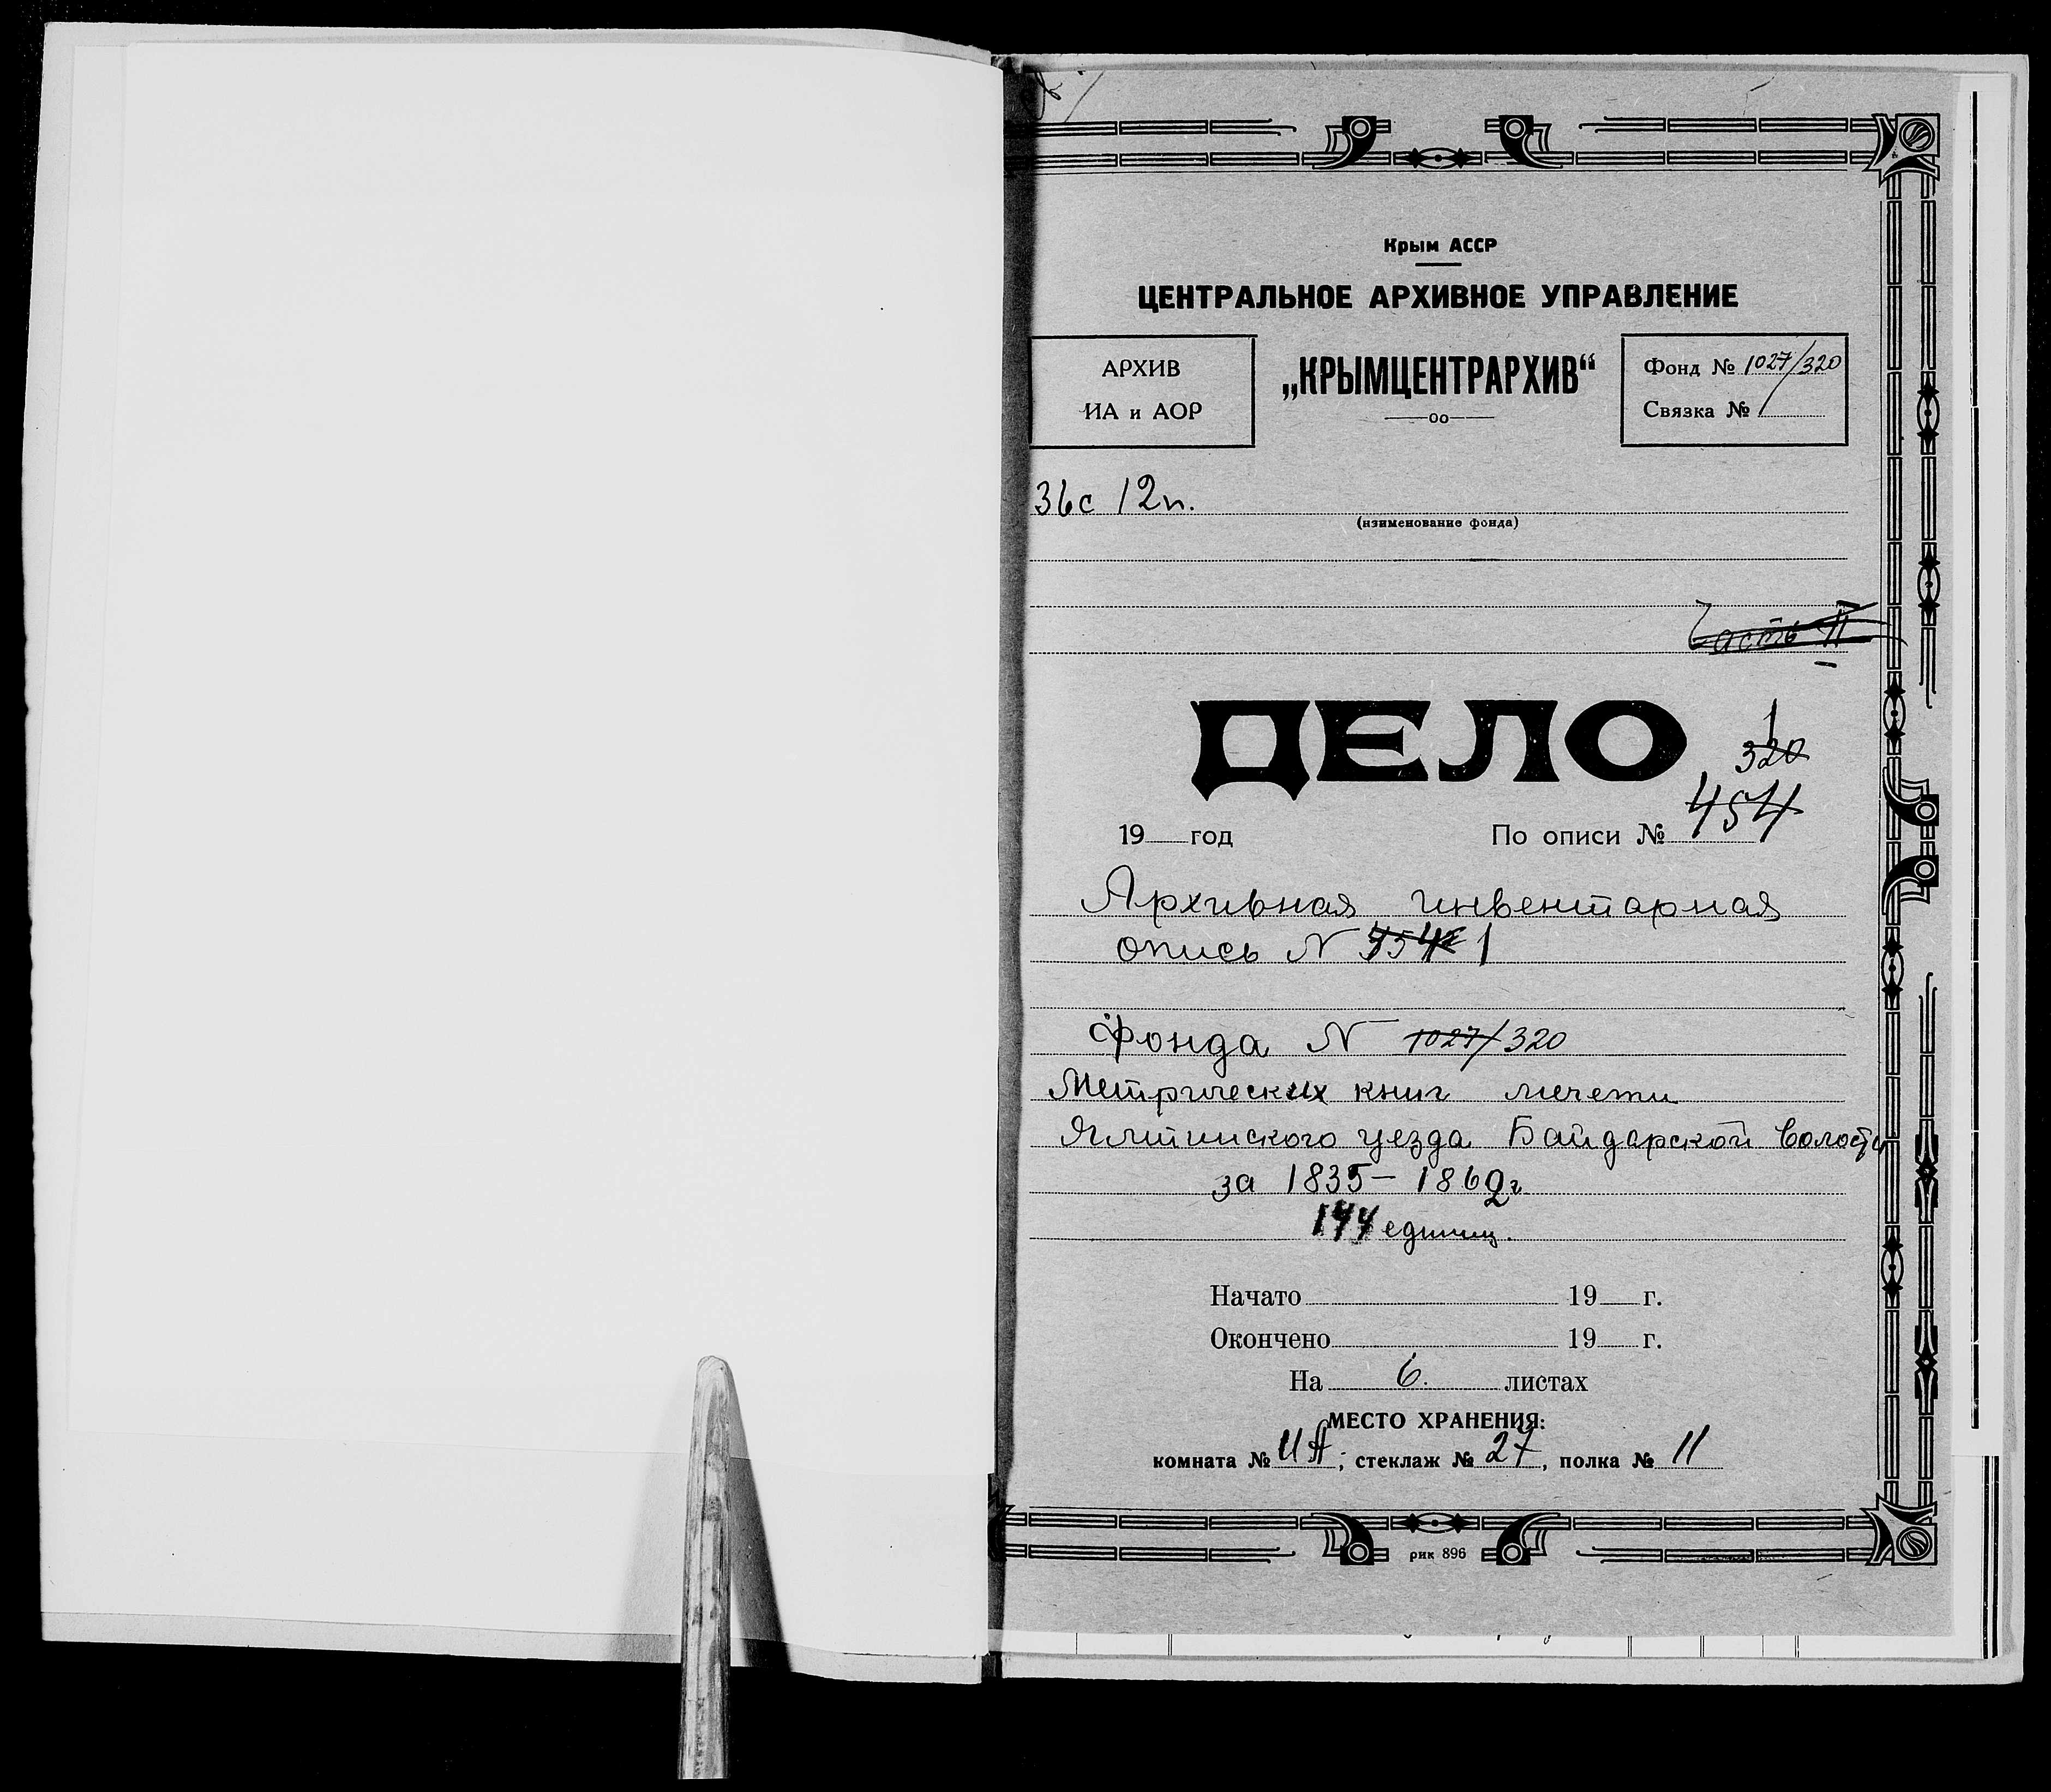 Крым АССР
ЦЕНТРАЛЬНОЕ АРХИВНОЕ УПРАВЛЕНИЕ
АРХИВ
ИА и АОР
„КРЫМЦЕНТРАРХИВ“
Фонд № 1027/320
Связка №
12п.
(наименование фонда)
Часть II
ДЕЛО
1
320
454
19 год По описи №
Архивная инвентарная
опись N 1
Фонда N 1027/320
Метрических книг мечети
Ялтинского уезда Байдарской волости
за 1835 – 1869г
144 единиц.
Начато 19 г.
Окончено 19 г.
На 6. листах
МЕСТО ХРАНЕНИЯ:
комната № ИА; стеклаж № 27, полка № 11
рик 896